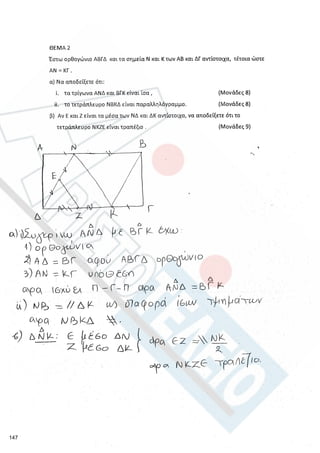 ΘΕΜΑ 2
Έστω ορθογώνιο ΑΒΓΔ και τα σημεία Ν και Κ των ΑΒ και ΔΓ αντίστοιχα, τέτοια ώστε
ΑΝ = ΚΓ .
α) Να αποδείξετε ότι:
i. τα τρίγωνα ΑΝΔ και ΒΓΚ είναι ίσα , (Μονάδες 8)
ii. το τετράπλευρο ΝΒΚΔ είναι παραλληλόγραμμο. (Μονάδες 8)
β) Αν Ε και Ζ είναι τα μέσα των ΝΔ και ΔΚ αντίστοιχα, να αποδείξετε ότι το
τετράπλευρο ΝΚΖΕ είναι τραπέζιο . (Μονάδες 9)
Α Ν Β
Ε
Δ Ζ Κ Γ
α) Συγκρίνω ΑΝΔ με ΒΓΚ έχω
1) ορθογώνια
2) ΑΔ = ΒΓ αφού ΑΒΓΔ ορθογώνιο
3) ΑΝ = ΚΓ υπόθεση
άρα ισχύει Π-Γ-Π άρα ΑΝΔ = ΒΓΚ
ii) ΝΒ = // ΔΚ ως διαφορά ίσων τμημάτων
άρα ΝΒΚΔ
β) ΔΝΚ: Ε μέσο ΔΝ
Ζ μέσο ΔΚ } άρα ΕΖ =\\ ΝΚ/2
άρα ΝΚΖΕ τραπέζιο.
147